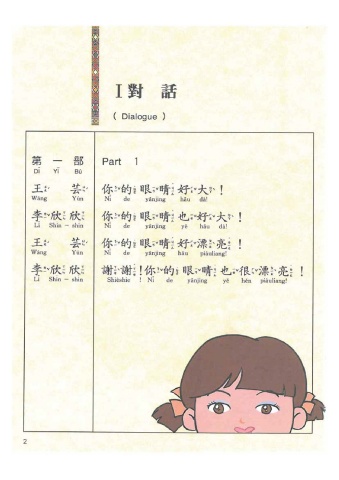 I 對 話
( Dialogue )
第 一 部 Part 1
Dì Yī Bù
王 芸 你的眼睛好大！
Wáng Yún Nǐ de yǎnjing hǎu dà!
李欣欣 你的眼睛也好大！
Lǐ Shin-shin Nǐ de yǎnjing yě hǎu dà!
王 芸 你的眼睛好漂亮！
Wáng Yún Nǐ de yǎnjing hǎu piàuliang!
李欣欣 謝謝！你的眼睛也很漂亮！
Lǐ Shin-shin Shièshie ! Nǐ de yǎnjing yě hěn piàuliang!
2